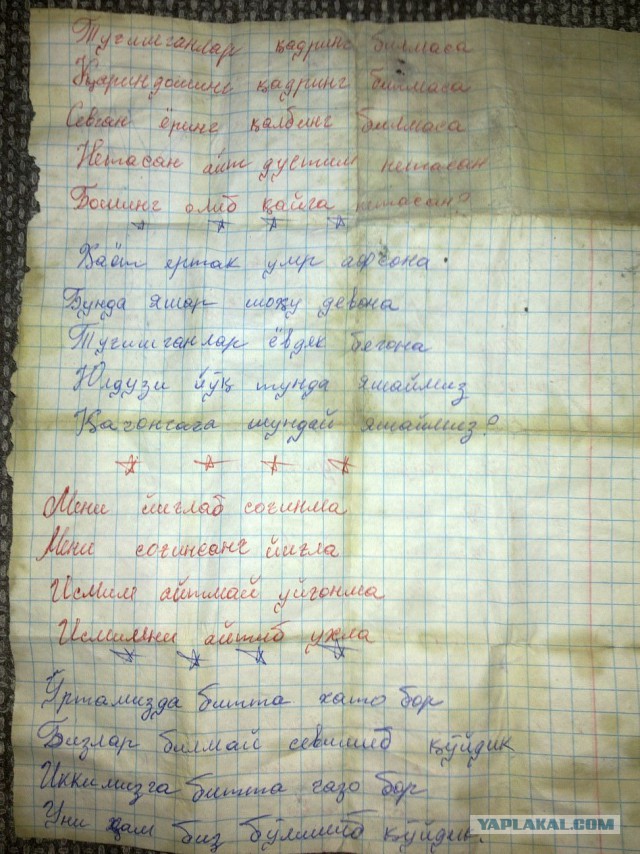 Тугишганлар қадринг билмаса
Қариндошинг қадринг билмаса
Севган ёринг қалбинг билмаса
Нетасан айт дустим нетасан
Бошинг олиб қайга нетасан?
Хаёт эртак умр афсона
Бунда яшар шоҳу девона
Тугишганлар ёвдек бегона
Юлдузи йўқ тунда яшаймиз
Қачонгача шундай яшаймиз?
Мени йиглаб согинма
Мени согинсанг йигла
Исмим айтмай уйгонма
Исмимни айтиб ухла
Ўртамизда битта хато бор
Бизлар билмай севишиб қўйдик
Иккимизга битта газо бор
Уни ҳам биз бўлишиб қўйдик.
YAPLAKAL.COM